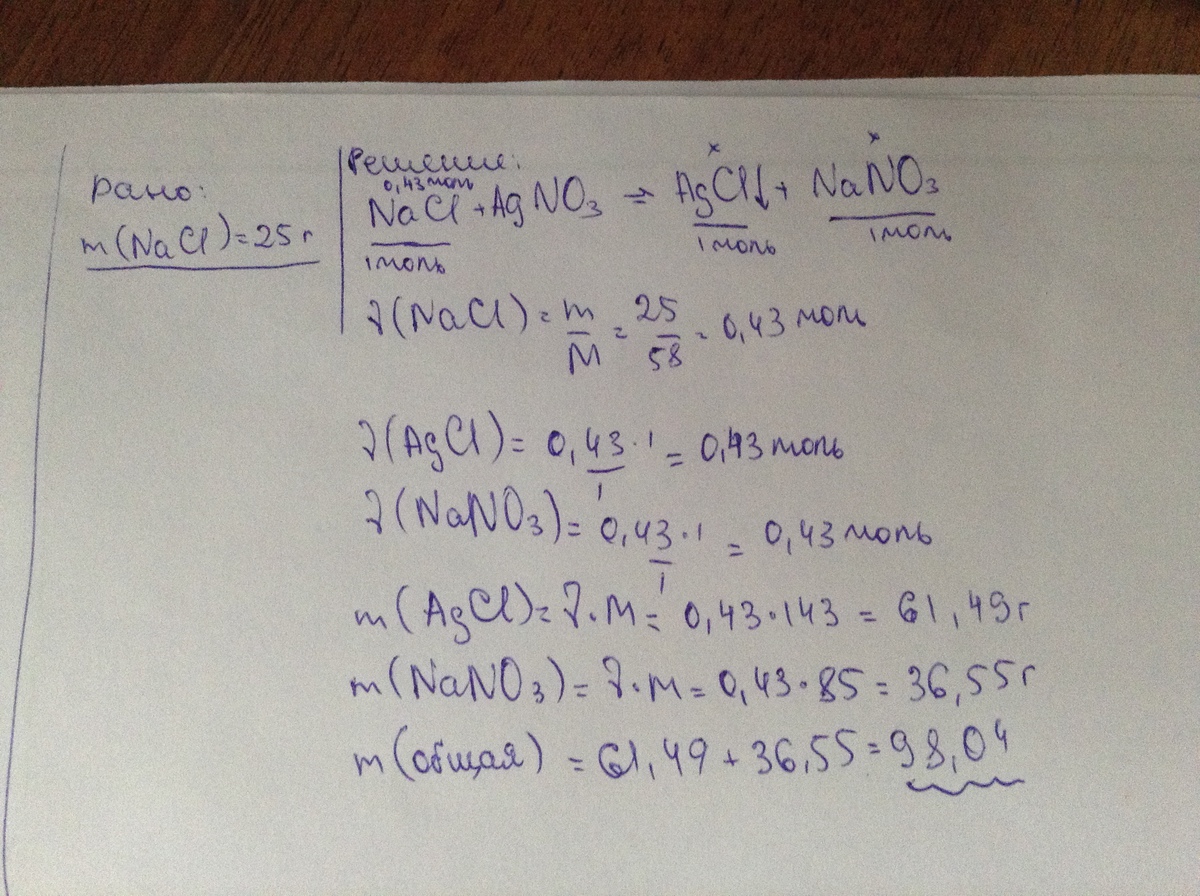 Дано:
m(NaCl)=25 г
Решение:
0,43 моль x x
NaCl + AgNO₃ = AgCl↓ + NaNO₃
1 моль 1 моль 1 моль
ν(NaCl) = m/M = 25/58 = 0,43 моль
ν(AgCl) = 0,43·1/1 = 0,43 моль
ν(NaNO₃) = 0,43·1/1 = 0,43 моль
m(AgCl) = ν·M = 0,43·143 = 61,49 г
m(NaNO₃) = ν·M = 0,43·85 = 36,55 г
m(общая) = 61,49 + 36,55 = 98,04